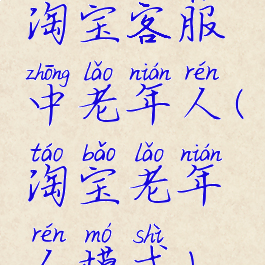 淘宝客服
zhōng lǎo nián rén
中老年人(
táo bǎo lǎo nián
淘宝老年
rén mó shì
人模式)